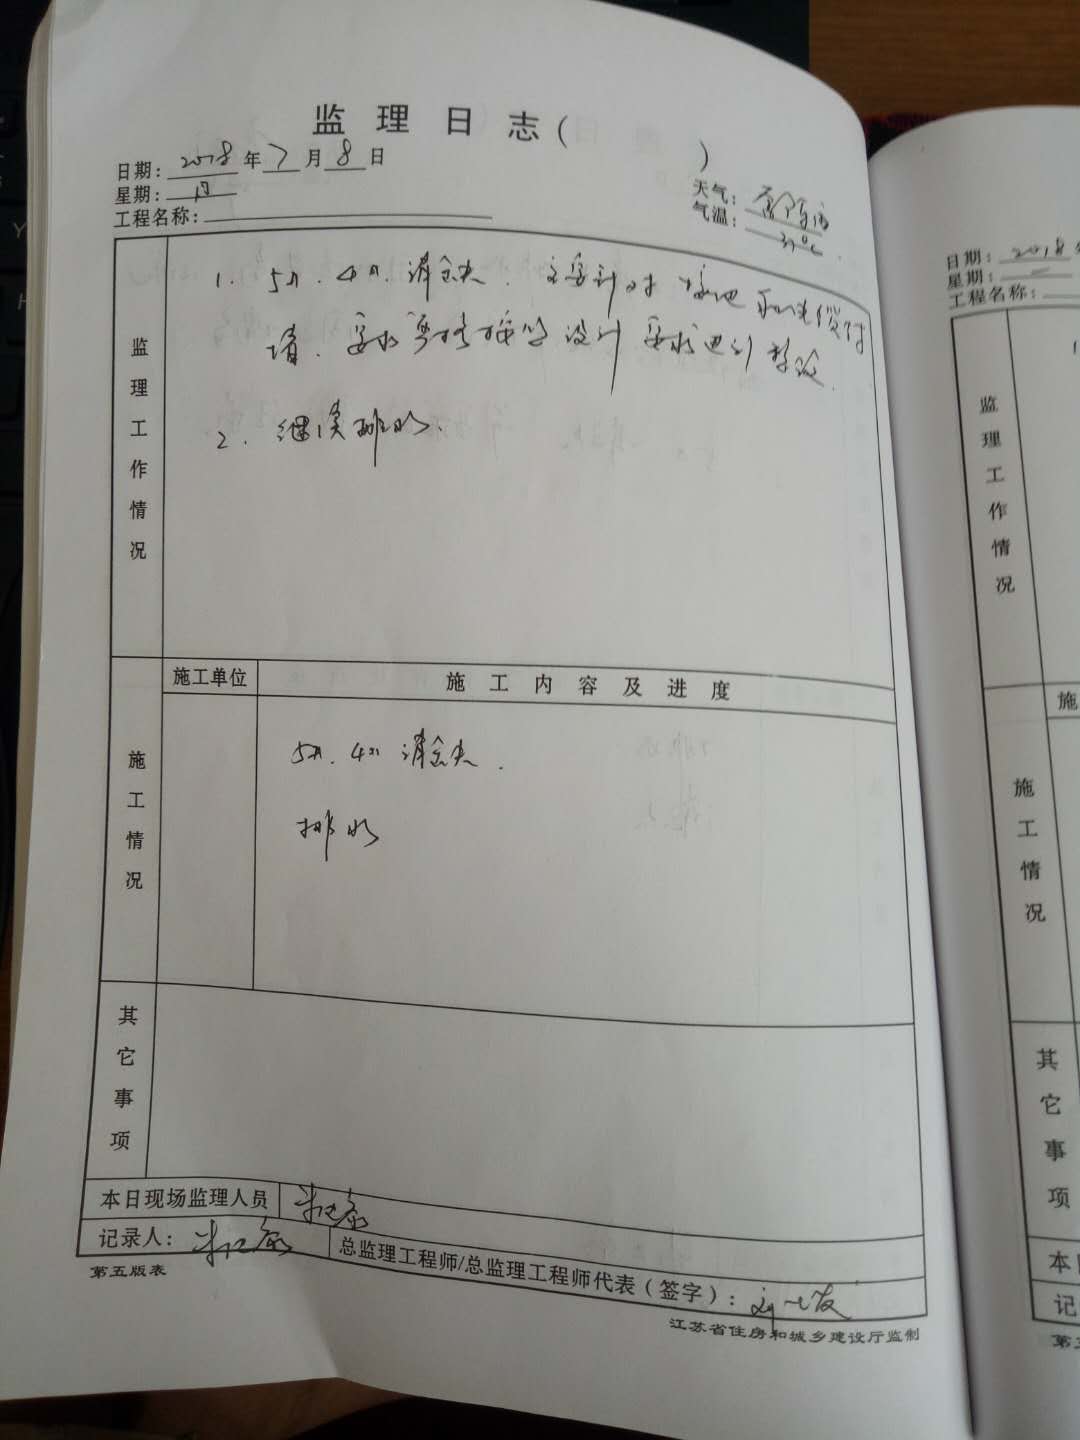 监理日志( )
日期: 2018年7月8日
星期: 日
工程名称:
天气: 雷阵雨
气温: 31℃
监理工作情况
1. 5#、4#、消缺,主要针对接地
要求严格按照设计要求进行整改.
2. 继续排水.
施工单位 施工内容及进度
施工情况
5#、4# 消缺.
排水
其它事项
本日现场监理人员
记录人:
总监理工程师/总监理工程师代表(签字):
第五版表
江苏省住房和城乡建设厅监制
日期: 2018
星期:
工程名称:
监理工作情况
施
施工情况
其它事项
本
记
第五